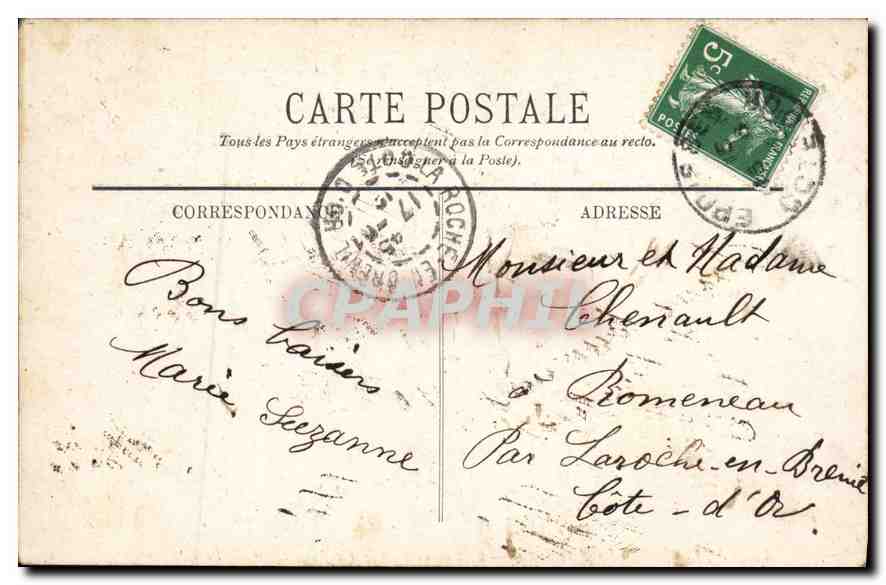 CARTE POSTALE
Tous les Pays étrangers n'acceptent pas la Correspondance au recto.
(Se renseigner à la Poste).
CORRESPONDANCE
ADRESSE
5c
POSTES
LA ROCHE EN BRENIL
17
CPAPHIL
Bons baisers
Marie Suzanne
Monsieur et Madame
Chenault
Romeneau
Par Laroche-en-Brenil
Côte-d'Or